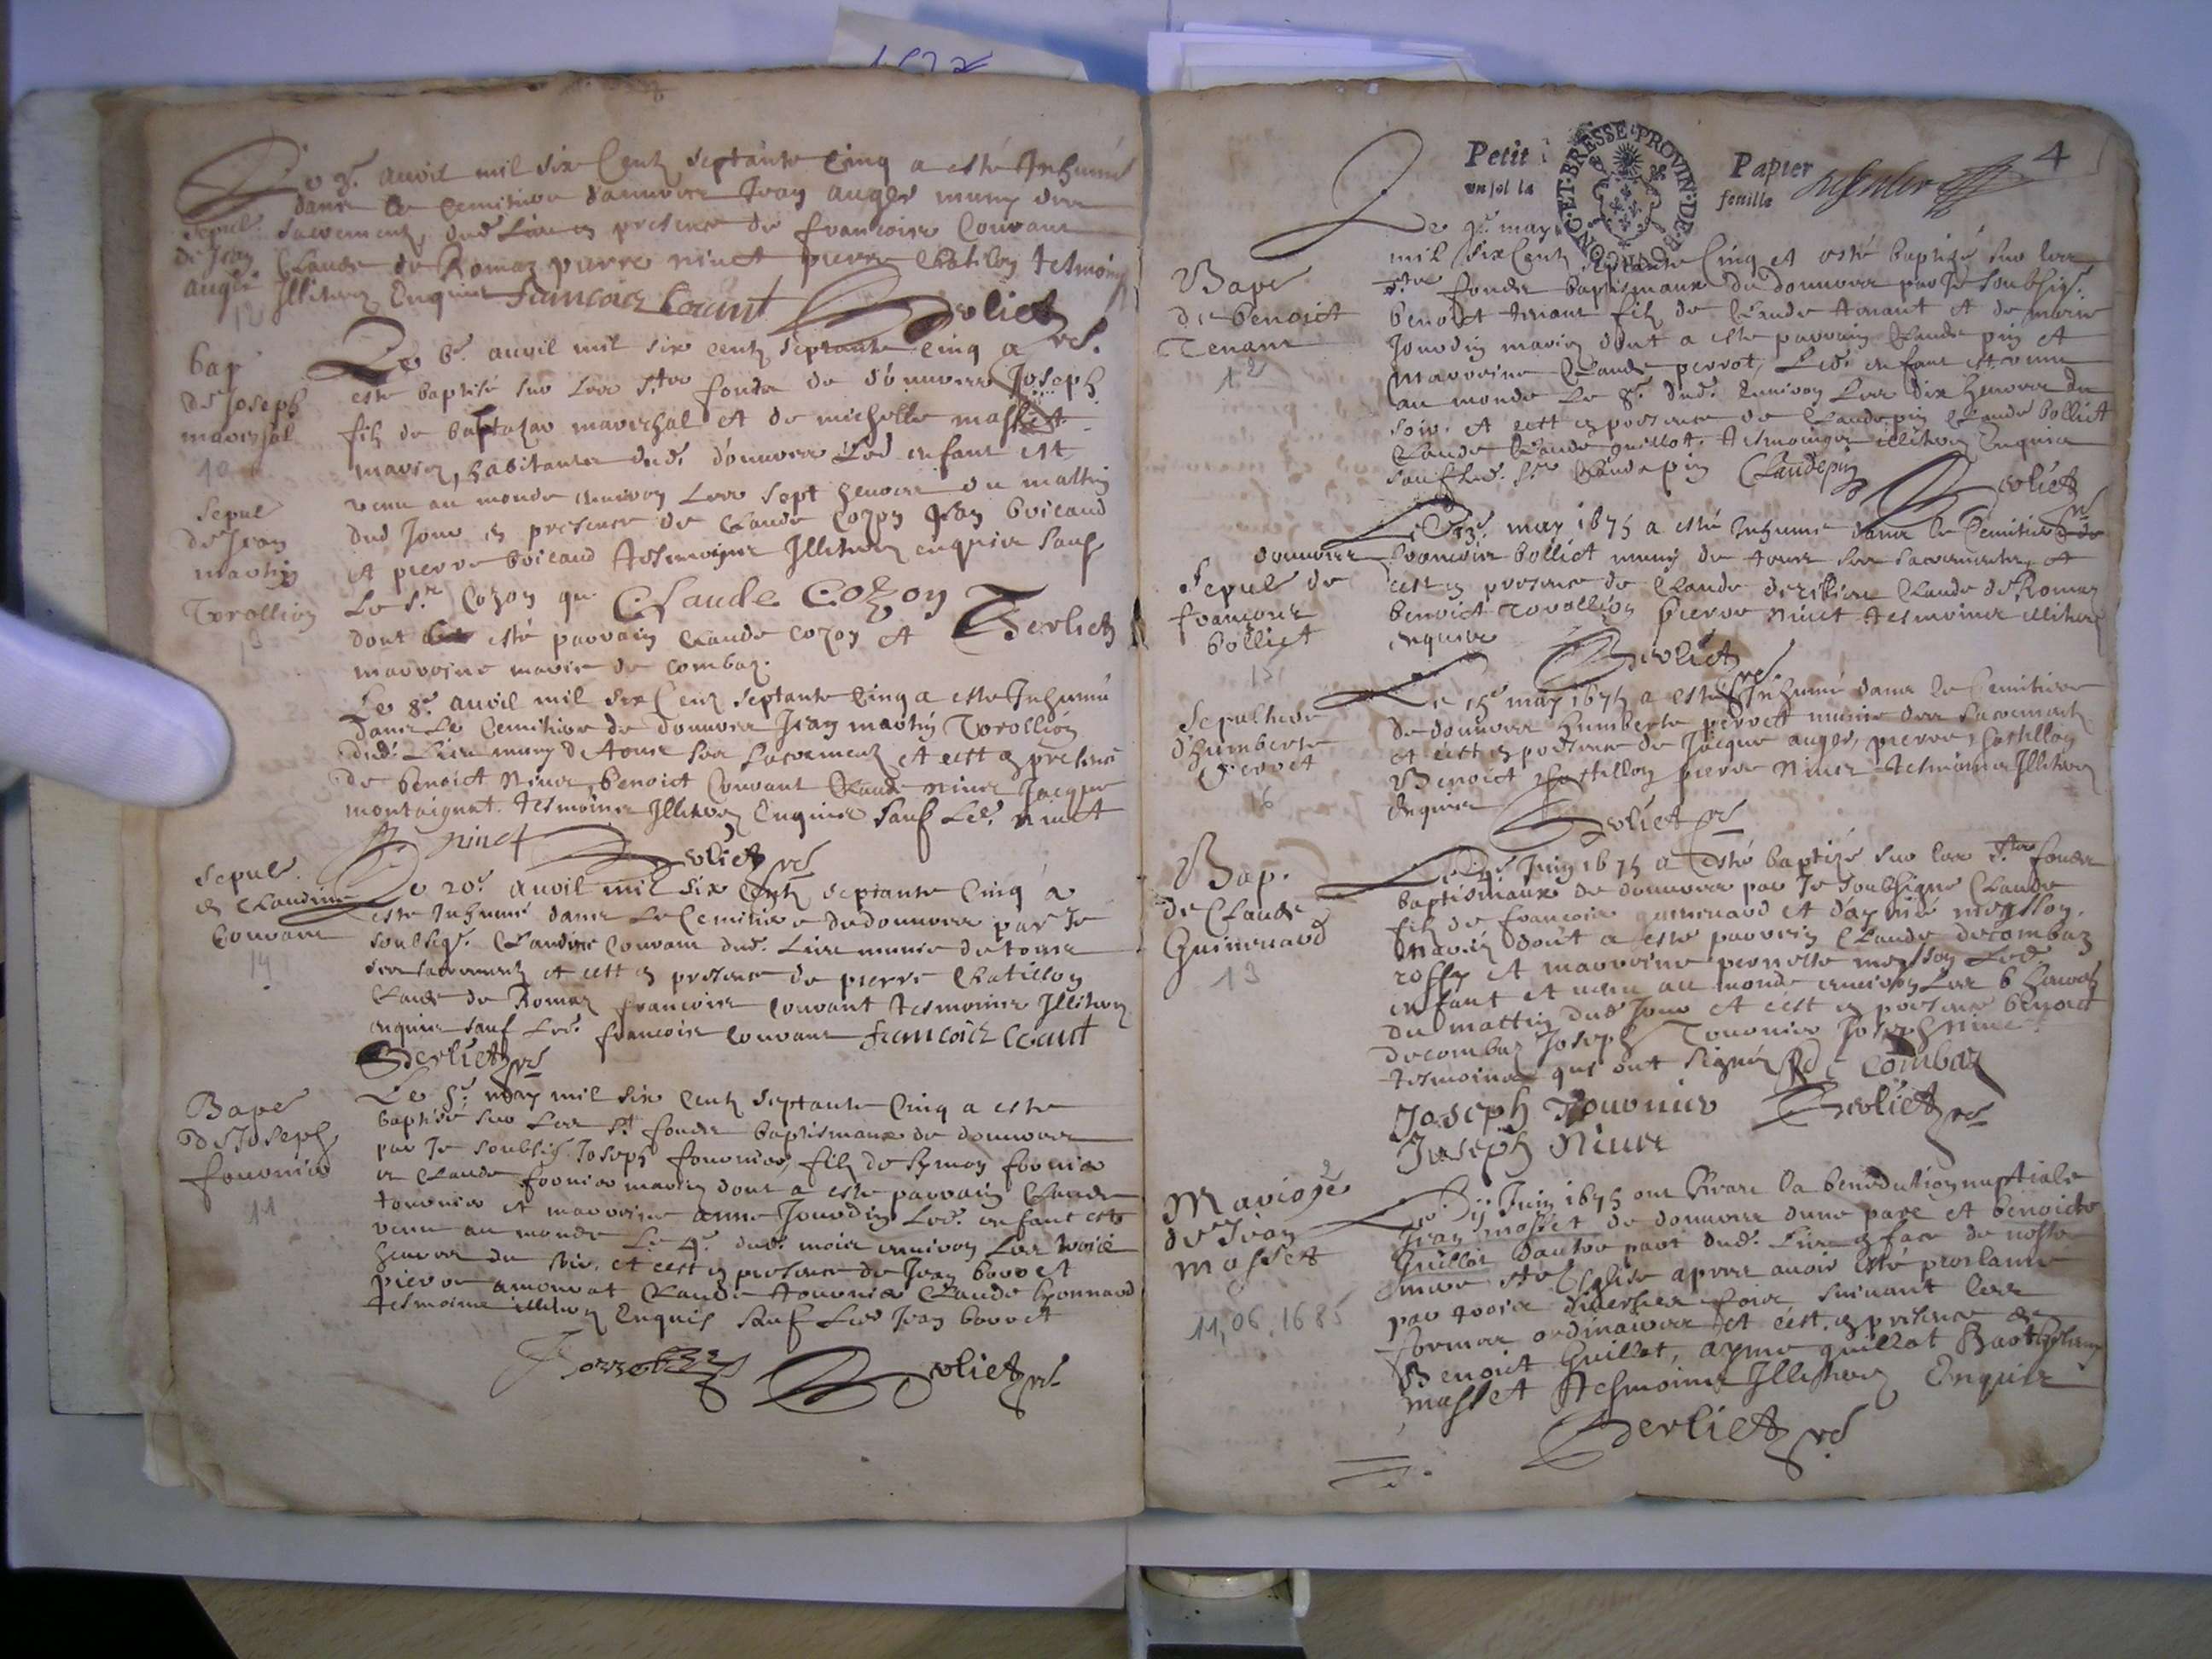 Le 3e. avril mil six Centz septante Cinq a esté Inhumé
dans le Cemitiere douvres Jean auger muny des
sacrements, dud Lieu en presence de francois Couvant
Claude de Romaz pierre ninet pierre Chatillon tesmoins
Illiterez Enquis francois Couant Berliet rd.
Sepul.
de Jean
auger
12
Le 6e. avril mil six centz septante Cinq a
esté baptisé sur Les stes fonds de douvres Joseph
filz de baltazar mareschal et de michelle masset
mariez, habitants dud. douvres Led enfant est
venu au monde environ Les sept heures du mattin
dud Jour en presence de Claude Cozon Jean boicaud
et pierre boicaud tesmoings Illiterez enquis sauf
Le sr. Cozon qu. Claude Cozon Berliet
dont a esté parrain Claude Cozon et
marroine marie de Combaz.
bap
de Joseph
mareschal
10
Sepul
de Jean
martin
Torollion
13
Le 8e. avril mil six Centz septante Cinq a esté Inhumé
Dans Le Cemitiere de Douvres Jean martin Torollion
dud. Lieu muny de tous ses sacrementz et cest en presence
de benoict Ninet, benoict Couvant Claude ninet Jacque
montaignat. tesmoins Illiterez Enquis sauf Led. ninet
ninet Berliet rd
Sepul.
de Claudine
Couvant
14
Le 20e. avril mil six Centz septante Cinq a
esté Inhumé dans Le Cemitiere de douvres par Je
soubsigé. Claudine Couvant dud. Lieu munie de tous
ses sacrementz et cest en presence de pierre Chatillon
Claude de Romaz francois Couvant tesmoins Illiterez
enquis sauf Led. francois Couvant francois Couant
Berliet rd
Bape
De Joseph
fournier
11
Le 5e. may mil six Centz septante Cinq a esté
baptisé sur Les st. fonds baptismaux de douvres
par Je soubsig. Joseph fournier, filz de Symon fournier
et Claude fournier mariez dont a esté parrain Claude
tournier et marroine anne Jourdin Led. enfant est
venu au monde Le 4e. dud. mois environ Les trois
heures du soir, et cest en presence de Jean borret
pierre amourat Claude tournier Claude bonnard
tesmoins illiterez Enquis sauf Led Jean borret
Borret Berliet rd
Petit Papier
un sol la feuille
BOURG. ET. BRESSE. PROVIN. DE.
4
Le 9e. may
mil six Centz septante Cinq et esté baptisé sur les
stes fonds baptismaux de douvres par Je soubsig.
benoict tenant filz de Claude tenant et de marie
Jourdin mariez dont a esté parrain Claude pin et
Marroine Claude perrot, Led. enfant est venu
au monde Le 8e. dud. environ Les dix heures du
soir. et cest en presence de Claude pin Claude bolliet
Claude Claude guillot. tesmoings illiterez Enquis
sauf Led. sr. Claude pin Claudepin Berliet rd
Bape
de benoict
Tenant
12
Le 13e. may 1675 a esté Inhumé dans le Cemitiere de
douvres francois bolliet muny de tous ses sacrements, et
cest en presence de Claude Claude de Romaz
benoict torollion pierre Ninet tesmoins illiterez
enquis Berliet rd
Sepul de
francois
bolliet
15
Le 15e may 1675 a esté Inhumé dans le Cemitiere
de douvres humberte perret munie des sacrementz
et cest en presence de Jacque auger, pierre Chastillon
Benoict Chastillon pierre Ninet tesmoins Illiterez
Enquis Berliet rd
Sepulture
d'humberte
Perret
16
Bap.
de Claude
Guinenaud
13
Le 4e Juin 1675 a esté baptizé sur les stes fonds
baptismaux de douvres par Je soubsigné Claude
filz de francois guinenaud et d'aymé messon.
mariez dont a esté parrein Claude decombaz
et marroine pernette messon Led.
enfant et venu au monde environ Les 6 heures
du mattin dud Jour et cest en presence benoict
decombaz Joseph Tournier Joseph ninet
tesmoins qui ont signéz B de Combaz
Joseph Tournier Berliet rd
Joseph Ninet
Mariage
de Jean
masset
11,06.1685
Le 11 Juin 1675 ont Receu la benediction nuptiale
Jean masset de douvres dune part et benoicte
Guillot dautre part dud. Lieu en face de nostre
mere ste Eglise apres avoir esté proclamé
par trois diverses fois suivant les
formes ordinaires et cest. en presence de
Benoict Guillot, ayme guillot Barthelemy
masset tesmoins Illiterez Enquis
Berliet rd